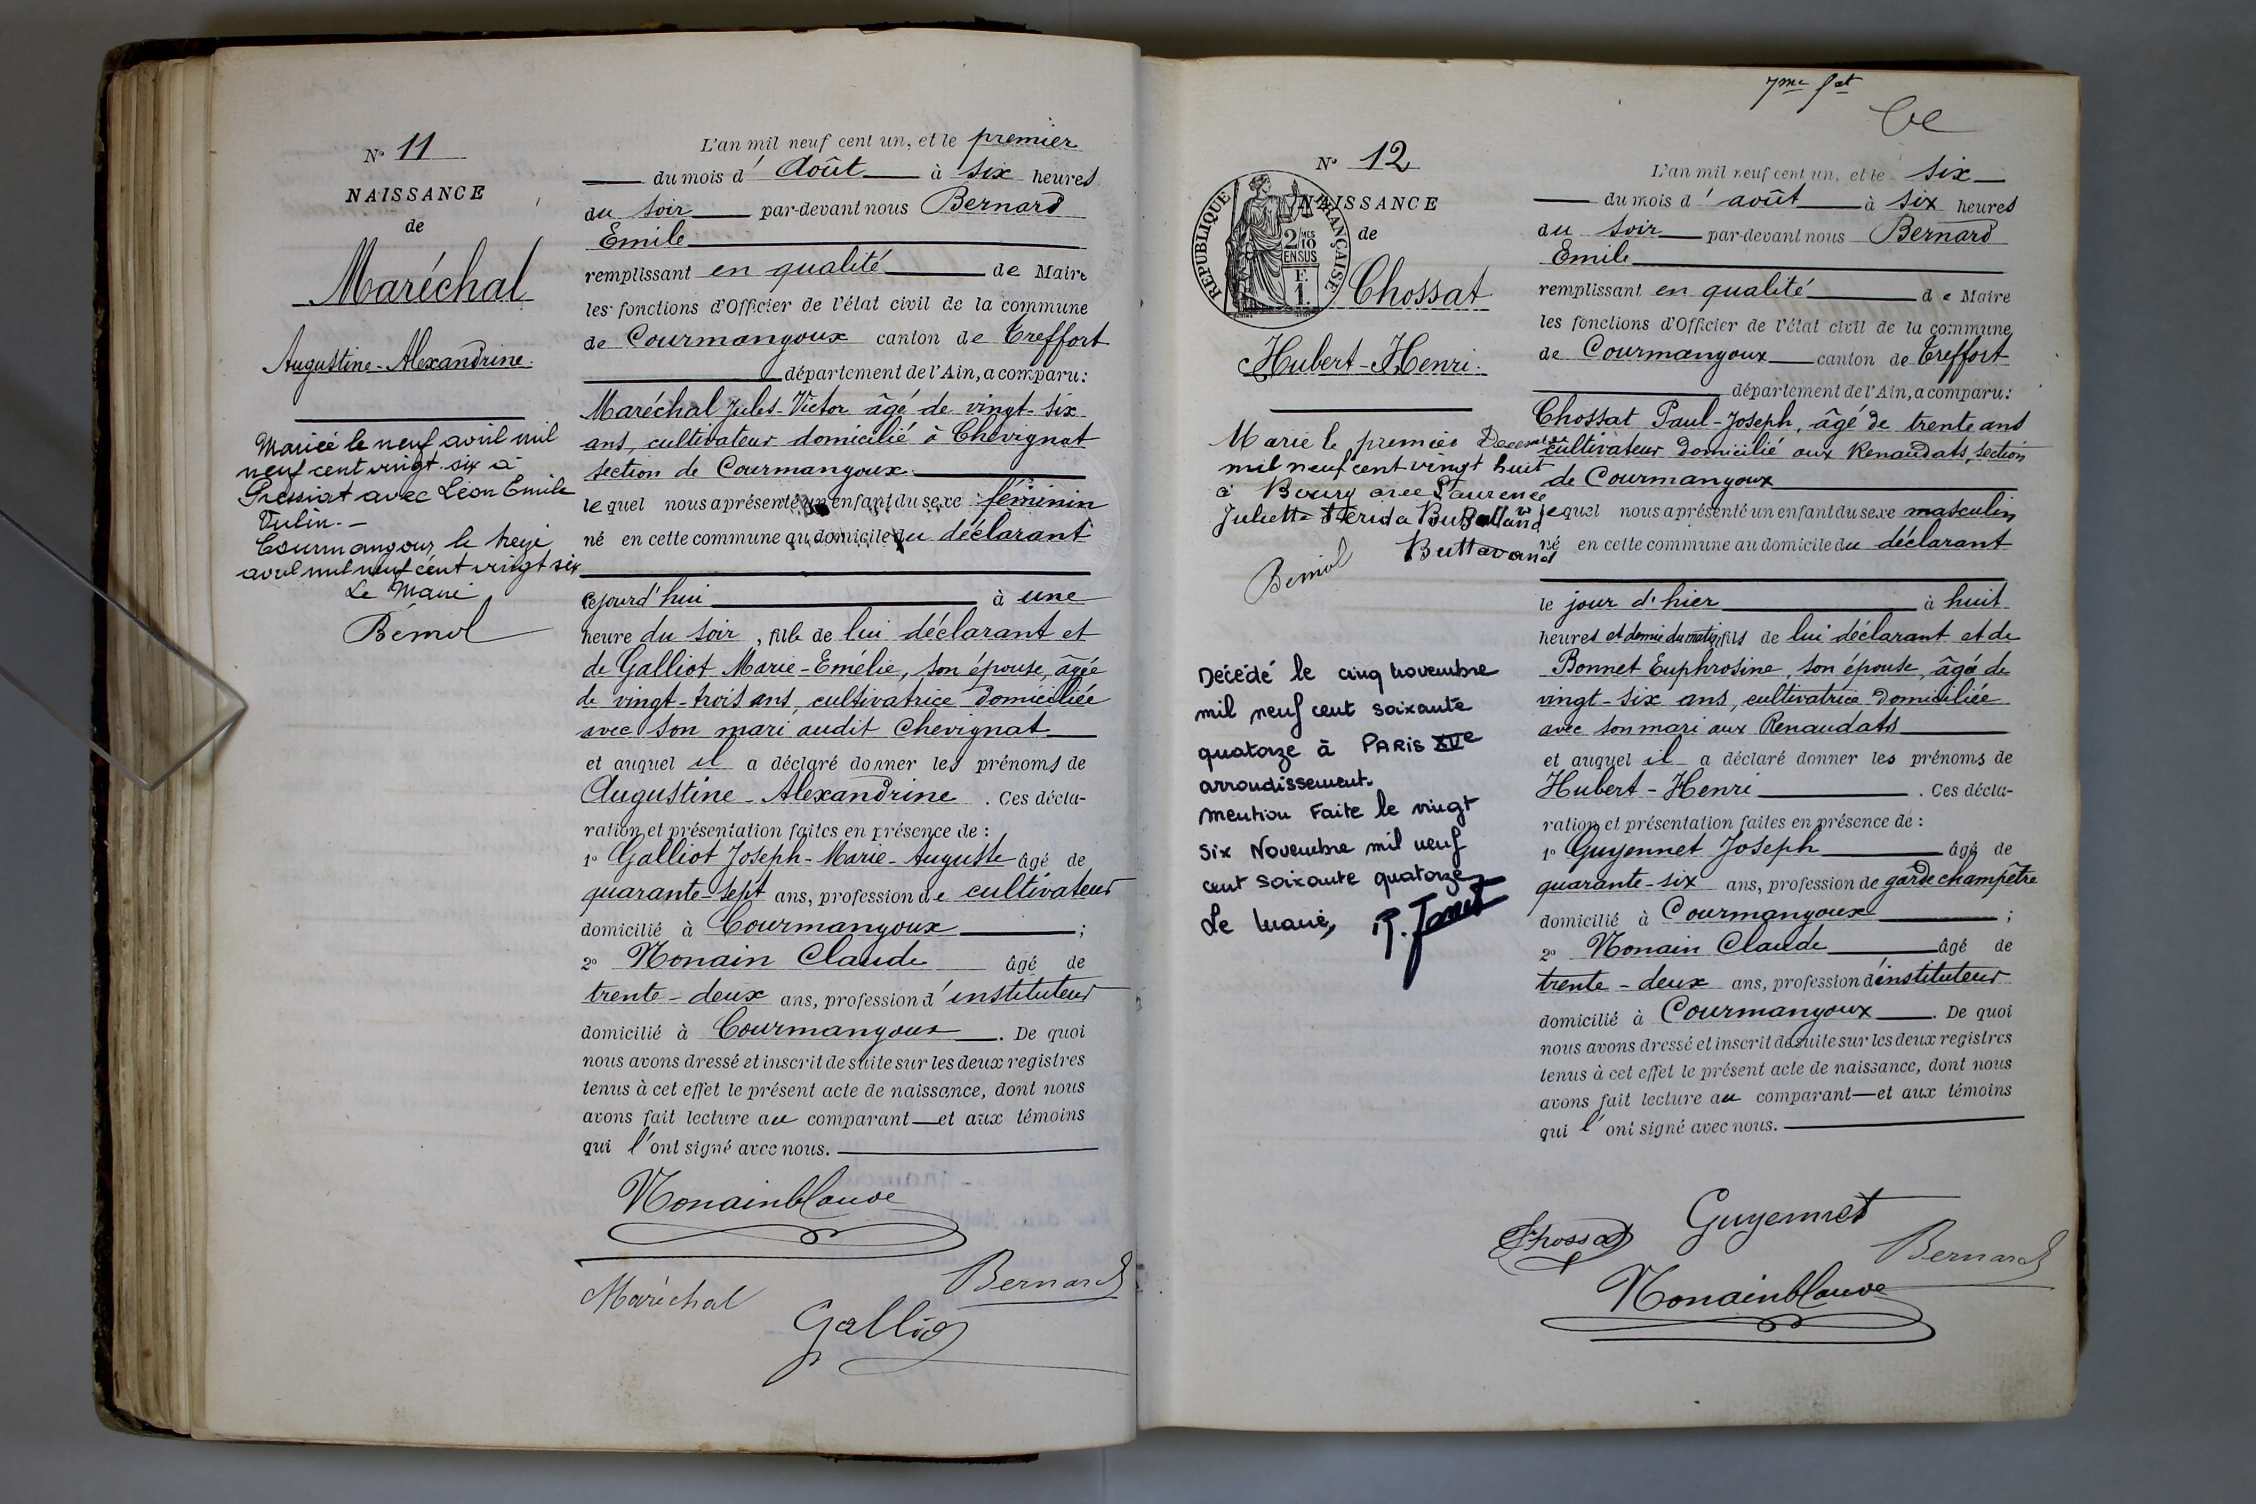 N° 11
NAISSANCE
de
Maréchal
Augustine-Alexandrine.
Mariée le neuf avril mil
neuf cent vingt-six à
Pressiat avec Léon Emile
Vulin.-
Courmangoux le treize
avril mil neuf cent vingt six
Le Maire
Bémol
L'an mil neuf cent un, et le premier
du mois d'Août à six heures
du soir par-devant nous Bernard
Emile
remplissant en qualité de Maire
les fonctions d'Officier de l'état civil de la commune
de Courmangoux canton de Treffort
département de l'Ain, a comparu:
Maréchal Jules-Victor âgé de vingt-six
ans, cultivateur domicilié à Chevignat
section de Courmangoux
lequel nous a présenté un enfant du sexe féminin
né en cette commune au domicile du déclarant
cejourd'hui à une
heure du soir, fille de lui déclarant et
de Galliot Marie-Emélie, son épouse, âgée
de vingt-trois ans, cultivatrice domiciliée
avec son mari audit Chevignat
et auquel il a déclaré donner les prénoms de
Augustine-Alexandrine. Ces décla-
ration et présentation faites en présence de :
1° Galliot Joseph-Marie-Auguste âgé de
quarante-sept ans, profession de cultivateur
domicilié à Courmangoux ;
2° Monain Claude âgé de
trente-deux ans, profession d'instituteur
domicilié à Courmangoux. De quoi
nous avons dressé et inscrit de suite sur les deux registres
tenus à cet effet le présent acte de naissance, dont nous
avons fait lecture au comparant et aux témoins
qui l'ont signé avec nous.
Monainblaude
Bernard
Maréchal
Galliot
7me f et
N° 12
NAISSANCE
de
RÉPUBLIQUE FRANÇAISE
2/10 MES
EN SUS
F.
1.
Chossat
Hubert-Henri.
Marié le premier Décembre
mil neuf cent vingt huit
à Bourg avec Laurence
Juliette
Buttavand
Bémol
Décédé le cinq novembre
mil neuf cent soixante
quatorze à PARIS XVe
arrondissement.
Mention Faite le vingt
six Novembre mil neuf
cent soixante quatorze
Le Maire,
L'an mil neuf cent un, et le six
du mois d'août à six heures
du soir par-devant nous Bernard
Emile
remplissant en qualité de Maire
les fonctions d'Officier de l'état civil de la commune
de Courmangoux canton de Treffort
département de l'Ain, a comparu:
Chossat Paul-Joseph, âgé de trente ans
cultivateur domicilié aux Renaudats, section
de Courmangoux
lequel nous a présenté un enfant du sexe masculin
né en cette commune au domicile du déclarant
le jour d'hier à huit
heures et demie du matin, fils de lui déclarant et de
Bonnet Euphrosine, son épouse, âgé de
vingt-six ans, cultivatrice domiciliée
avec son mari aux Renaudats
et auquel il a déclaré donner les prénoms de
Hubert-Henri. Ces décla-
ration et présentation faites en présence de :
1° Guyennet Joseph âgé de
quarante-six ans, profession de garde champêtre
domicilié à Courmangoux ;
2° Monain Claude âgé de
trente-deux ans, profession d'instituteur
domicilié à Courmangoux. De quoi
nous avons dressé et inscrit de suite sur les deux registres
tenus à cet effet le présent acte de naissance, dont nous
avons fait lecture au comparant et aux témoins
qui l'ont signé avec nous.
Chossat
Guyennet
Bernard
Monainblaude